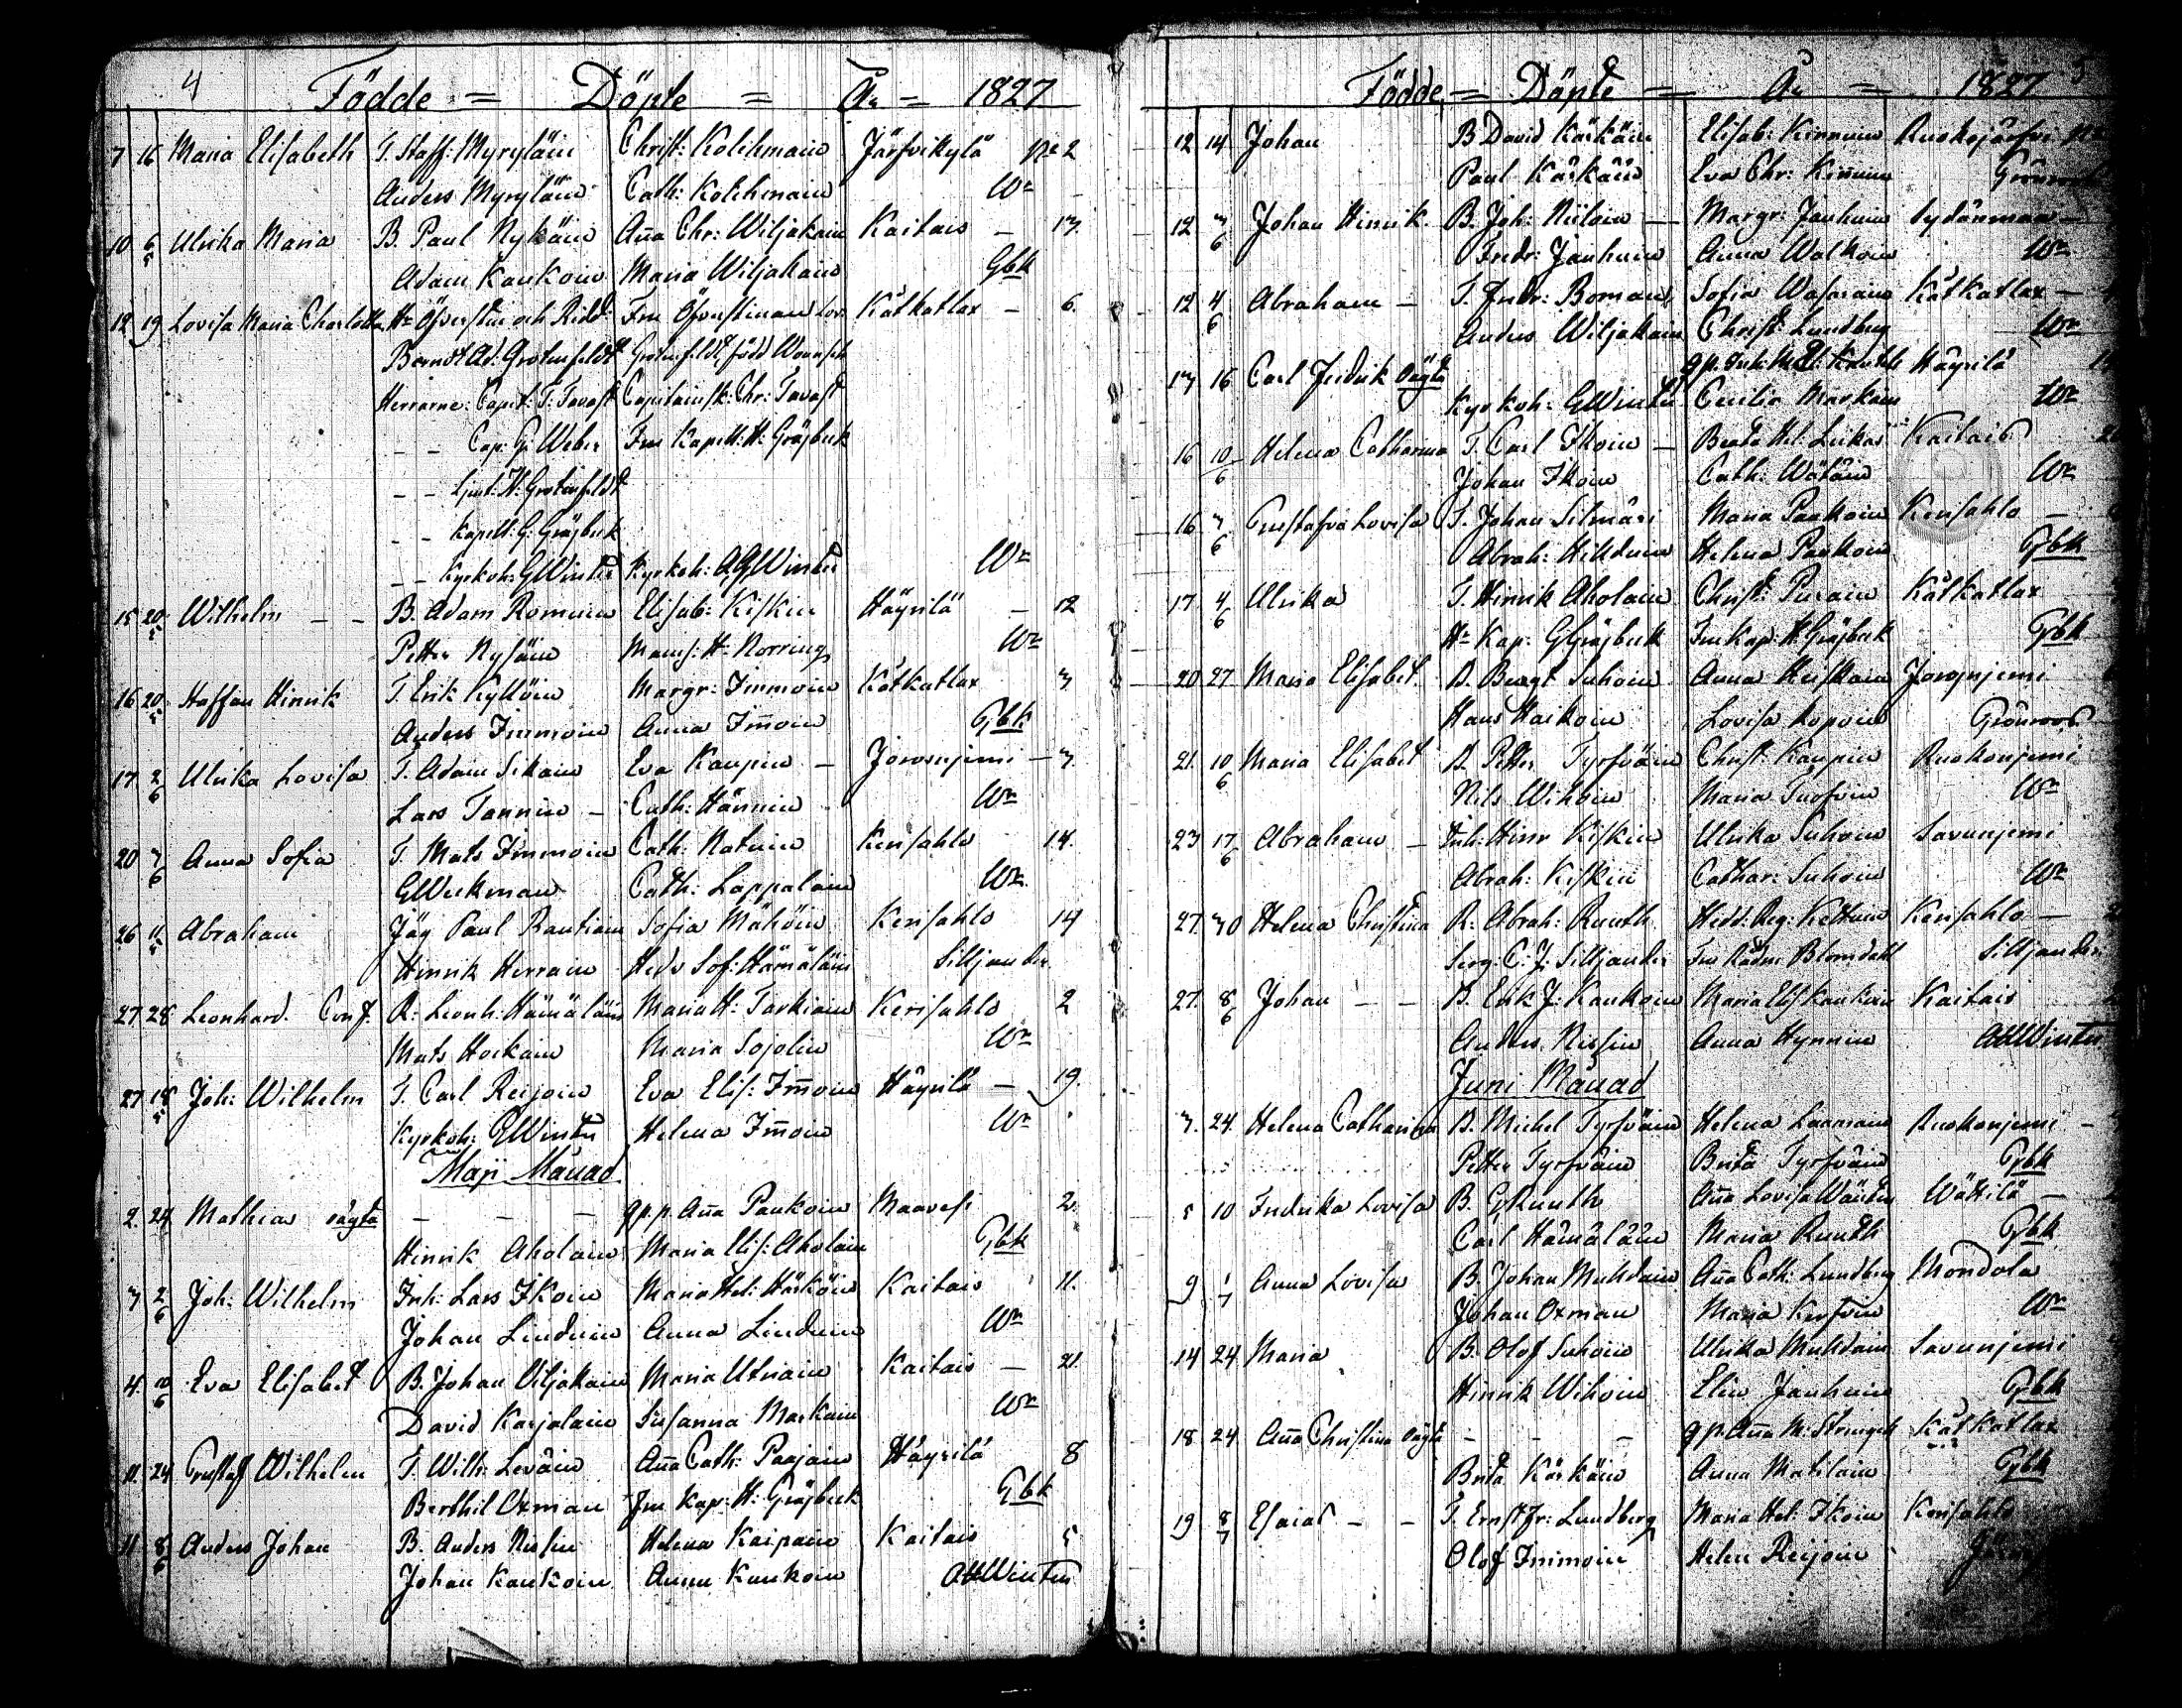 4
Födde = Döpte = År = 1827
7 16 Maria Elisabeth T. Staff: Myryläin Christ: Kolehmain Järfvikylä No 2
Anders Myryläin Cath: Kolehmain Wr
10 6/5 Ulrika Maria B. Paul Nykäin Aña Chr: Wiljakain Kaitais – 13.
Adam Kaukoin Maria Wiljakain Gbk
12 19 Lovisa Maria Charlotta Hr Öfverstin och Ridd: Fru Öfverstinnan Lov: Kätkatlax – 6.
Berndt Ad: Grotenfeldt Grotenfeldt, född
Herrarne: Capit: T. Tavast Capitainsk: Chr: Tavast
– – Cap: G: Weber Fru Kapell: H: Gräsbeck
– – H: Grotenfeldt
– – Kapell: G: Gräsbeck
– – Kyrkoh: GWinter Kyrkoh: AGWinter Wr
15 20/5 Wilhelm – – B. Adam Romuin Elisab: Kiskin Häyrilä – 12
Petter Nysäin Mams: H: Norring Wr
16 20/5 Staffan Hinrik T. Erik Kyllöin Margr: Immoin Kätkatlax 3
Anders Immoin Anna Im̃oin Gbk
17 2/6 Ulrika Lovisa T. Adam Sikain Eva Kaupin – Joroisnjemi – 3
Lars Tannin – Cath: Hännin Wr
20 3/6 Anna Sofia T. Mats Immoin Cath: Natuin Kerisahlo 14.
GWeckman Cath: Lappalain Wr
26 11/5 Abraham Jäg Paul Rautiain Sofia Mähöin Kerisahlo 14
Hinrik Herrain Hedv Sof: Hämäläin Silljander
27 28 Leonhard Conf. R: Leonh: Hämäläin Maria H: Tarkiain Kerisahlo 2
Mats Hockain Maria Sojolin Wr
27 18/5 Joh: Wilhelm T. Carl Reijoin Eva Elis: Im̃oin Häyrilä – 19.
Kyrkoh: GWinter Helena Im̃oin Wr
Maji Månad
2. 24 Mathias oägta – – – qp.p. Aña Paukoin Maavesi 2.
Hinrik Aholain Maria Elis: Aholain Gbk
3 2/6 Joh: Wilhelm Inh: Lars Ikoin Maria Hel: Härköin Kaitais 11.
Johan Linduin Anna Linduin Wr
4. 10/6 Eva Elisabet B. Johan Viljakain Maria Utriain Kaitais – 21.
David Karjalain Susanna Markain Wr
11. 24 Gustaf Wilhelm T. Wilh: Leväin Aña Cath: Paajain Häyrilä 8
Berthil Oxman Fru Kap: H: Gräsbeck Gbk
11 8/6 Anders Johan B. Anders Nissin Helena Kaipain Kaitais 5
Johan Kaukoin Anna Kaukoin AHWinter
Födde = Döpte = År = 1827 5
12 14 Johan B David Käikäin Elisab: Kinnuin Ruokojärfvi
Paul Käikäin Eva Chr: Kinnuin Grönroos
12 3/6 Johan Hinrik. B. Joh: Niiloin – Margr: Jauhiain Sydänmaa –
Fredr: Jauhiain Anna Walkoin Wr
12 4/6 Abraham – T. Fredr: Boman Sofia Wasarain Kätkatlax –
Anders Wiljakain Christ: Lundberg Wr
13 16 Carl Fredrik oägta Häyrilä
Kyrkoh: GWinter Cecilia Markain Wr
16 10/6 Helena Catharina T. Carl Ikoin – Beata Hel: Leikas Kaitais
Johan Ikoin Cath: Wätäin Wr
16 3/6 Gustafva Lovisa T. Johan Silmäri Maria Paukoin Kerisahlo –
Abrah: Hilduin Helena Paukoin Gbk
17 4/6 Ulrika T. Hinrik Aholain Christ: Purain Kätkatlax
Hr Kap: GGräsbeck Fru Kap: H Gräsbeck Gbk
20 27 Maria Elisabet. B. Bengt Suhoin Anna Heiskain Joroisnjemi
Hans Haikoin Lovisa Kopoin Grönroos
21. 10/6 Maria Elisabet B. Petter Tyrfväin Christ: Kaupin Ruokonjemi
Nils Wihoin Maria Wr
23 17/6 Abraham – Inh: Hinr Kiskin Ulrika Suhoin Savunjemi
Abrah: Kiskin Cathar: Suhoin Wr
27. 30 Helena Christina R: Abrah: Ruuth Hedd: Reg: Kettuin Kerisahlo –
Serg: C: J: Silljander Fru Blomdahl Silljander
27. 8/6 Johan – – B. Erik J: Kaukoin Maria Elis Kaukoin Kaitais
Anders Nissin Anna Hynnin AHWinter
Juni Månad
3. 24. Helena Catharina B. Michel Tyrfväin Helena Laamain Ruokonjemi –
Petter Tyrfväin Brita Tyrfväin Gbk
5 10 Fredrika Lovisa B. GRuuth Aña Lovisa Wättilä –
Carl Hämäläin Maria Ruuth Gbk
9 1/7 Anna Lovisa B. Johan Muhlain Aña Cath: Lundberg Mondola
Johan Oxman Maria Wr
14 24 Maria B. Olof Suhoin Ulrika Savunjemi
Hinrik Wihoin Elin Jauhiain Gbk
18 24 Aña Christina oägta – – – qp. Aña M: Kätkatlax
Brita Käikäin Anna Matilain Gbk
19 8/7 Esaias – – T. Ernst Fr: Lundberg Maria Hel: Ikoin Kerisahlo
Olof Immoin Helen Reijoin